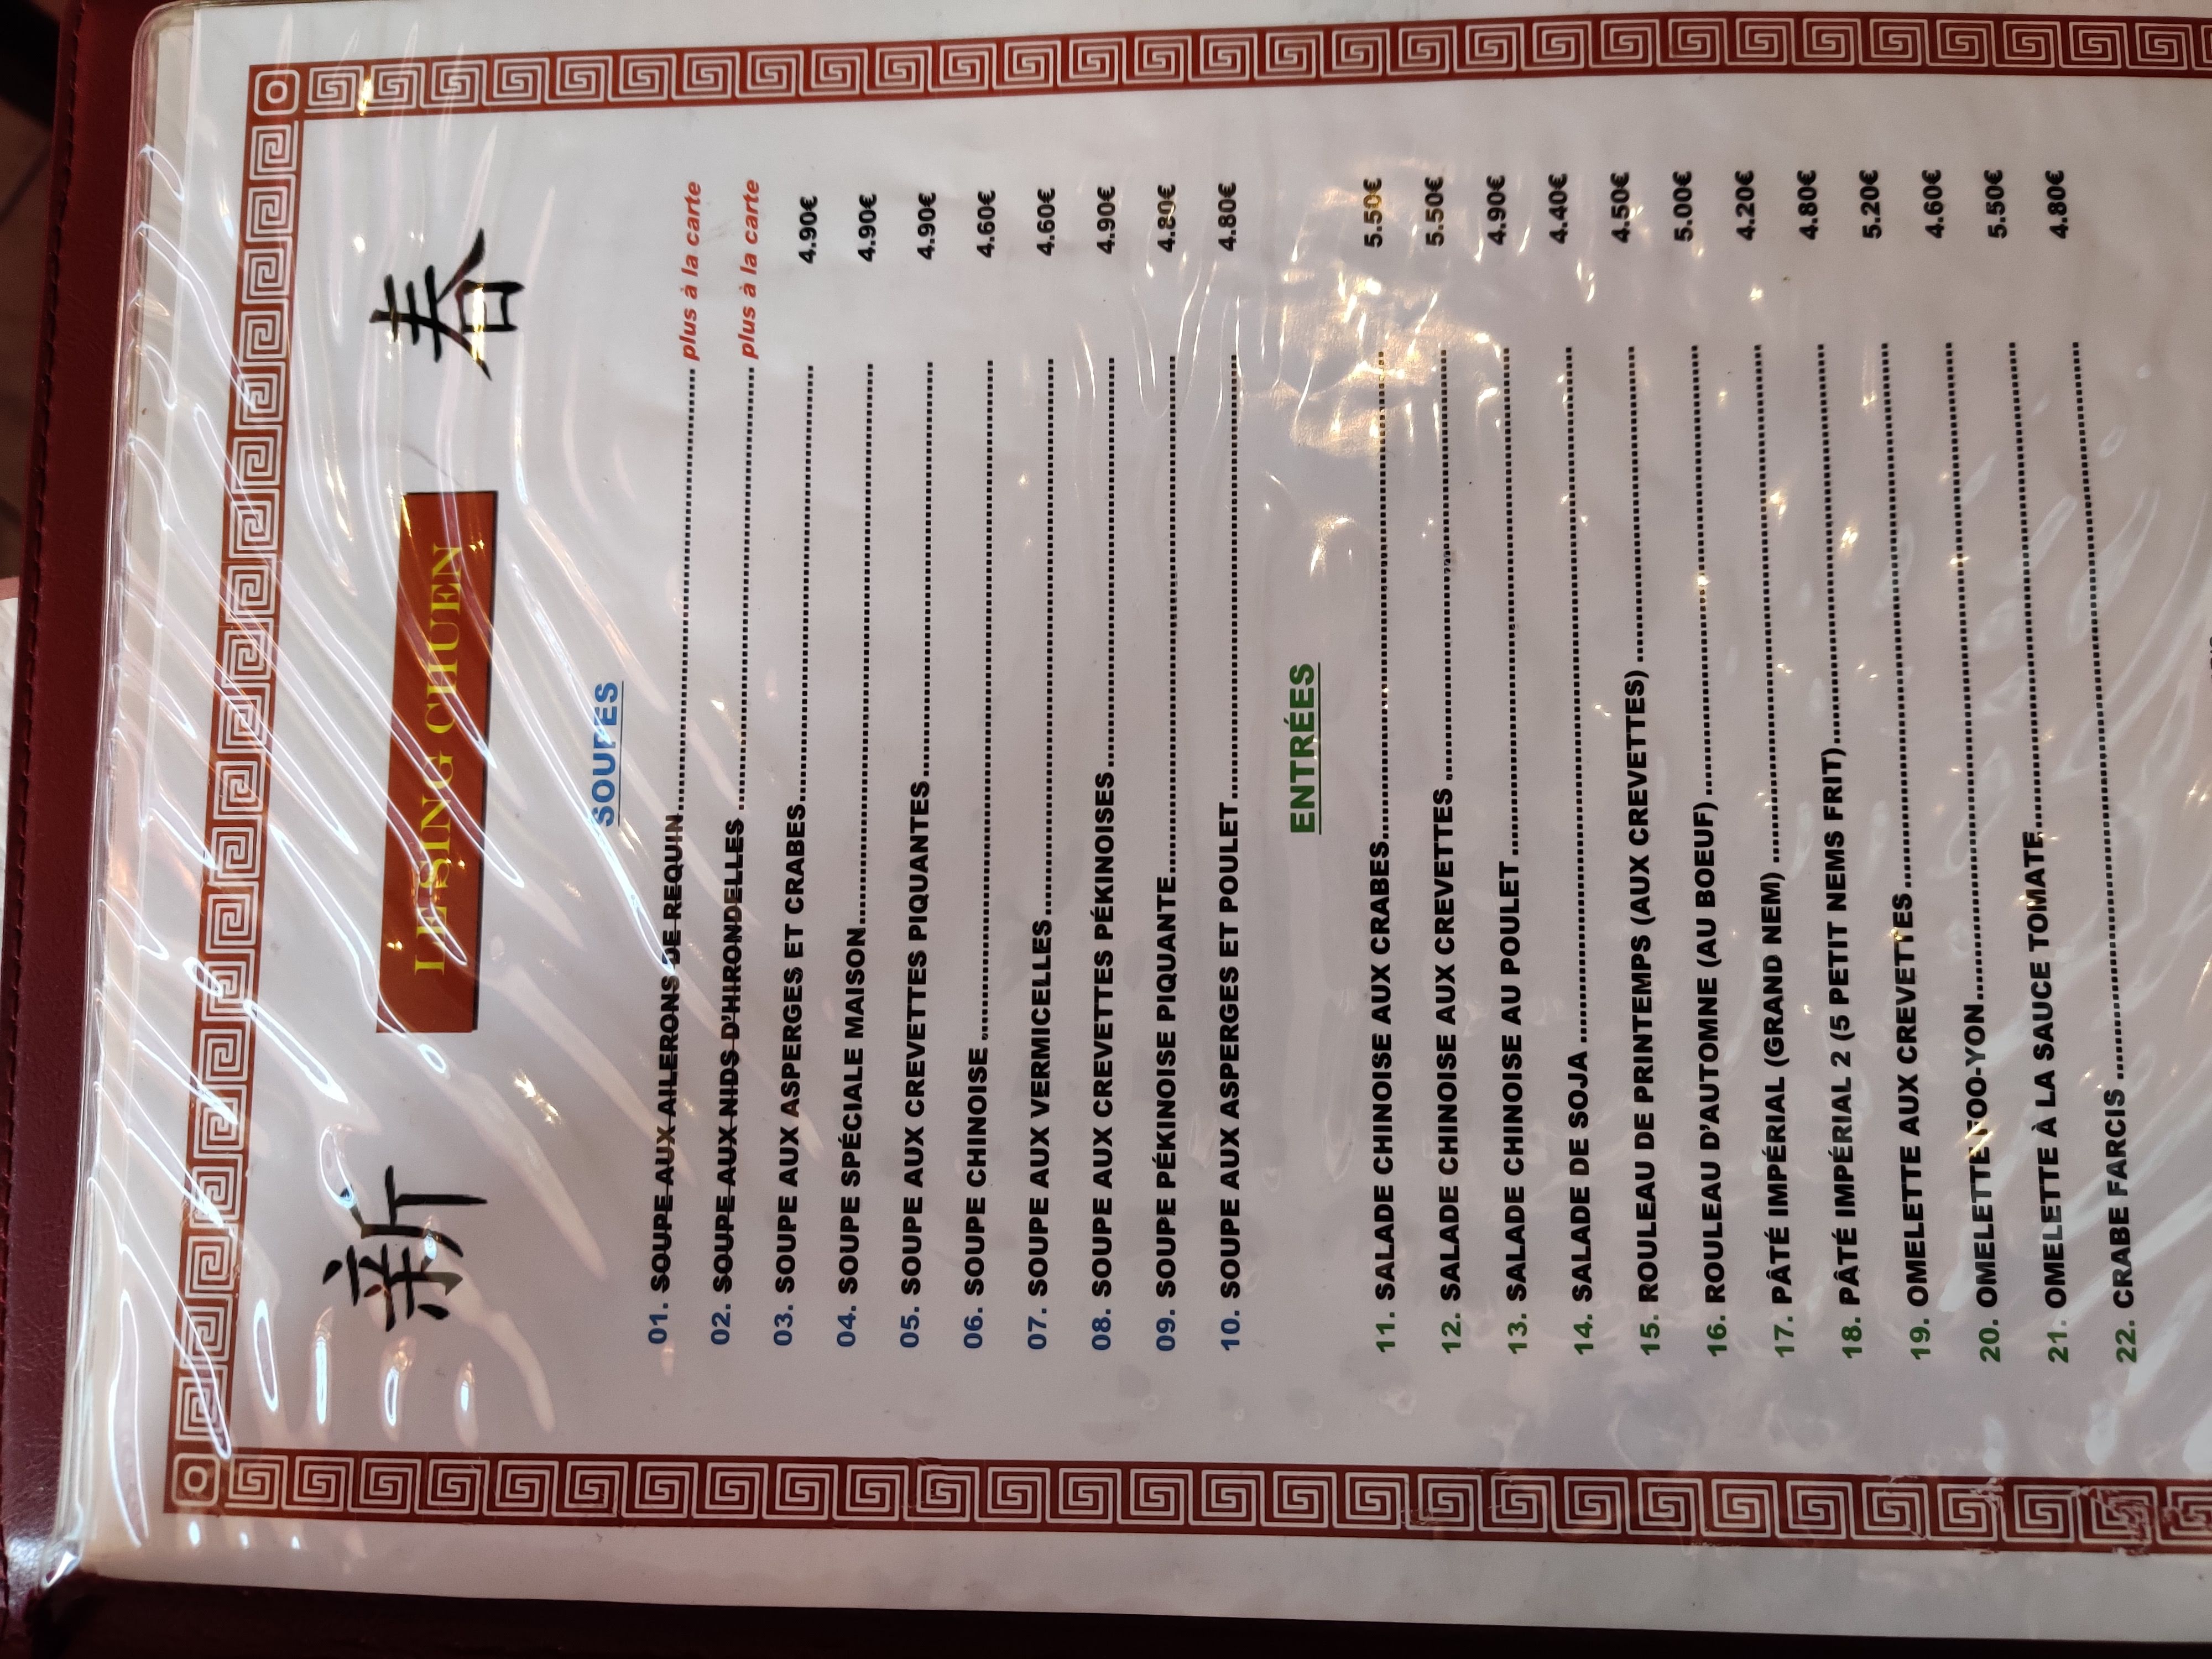 新 LE SING CHUEN 春
SOUPES
01. SOUPE AUX AILERONS DE REQUIN........ plus à la carte
02. SOUPE AUX NIDS D'HIRONDELLES ........ plus à la carte
03. SOUPE AUX ASPERGES ET CRABES........ 4.90€
04. SOUPE SPÉCIALE MAISON........ 4.90€
05. SOUPE AUX CREVETTES PIQUANTES........ 4.90€
06. SOUPE CHINOISE ........ 4.60€
07. SOUPE AUX VERMICELLES........ 4.60€
08. SOUPE AUX CREVETTES PÉKINOISES........ 4.90€
09. SOUPE PÉKINOISE PIQUANTE........ 4.80€
10. SOUPE AUX ASPERGES ET POULET........ 4.80€
ENTRÉES
11. SALADE CHINOISE AUX CRABES........ 5.50€
12. SALADE CHINOISE AUX CREVETTES ........ 5.50€
13. SALADE CHINOISE AU POULET ........ 4.90€
14. SALADE DE SOJA ........ 4.40€
15. ROULEAU DE PRINTEMPS (AUX CREVETTES) ........ 4.50€
16. ROULEAU D'AUTOMNE (AU BOEUF)........ 5.00€
17. PÂTÉ IMPÉRIAL (GRAND NEM) ........ 4.20€
18. PÂTÉ IMPÉRIAL 2 (5 PETIT NEMS FRIT)........ 4.80€
19. OMELETTE AUX CREVETTES........ 5.20€
20. OMELETTE FOO-YON........ 4.60€
21. OMELETTE À LA SAUCE TOMATE........ 5.50€
22. CRABE FARCIS ........ 4.80€